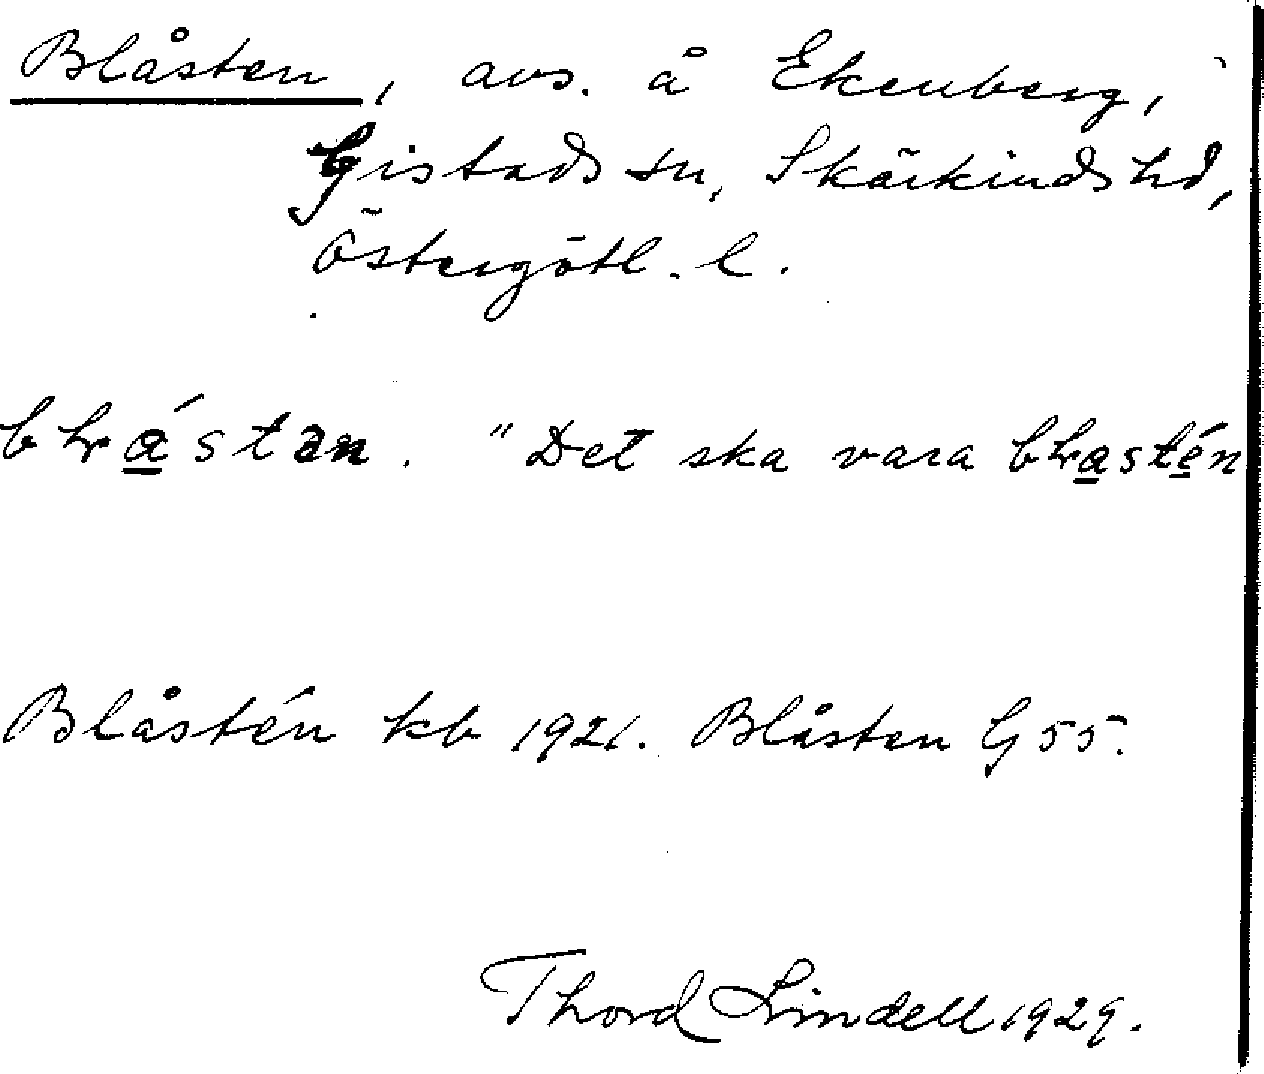 Blåsten, avs. å Ekenberg,
Gistads sn, Skärkinds hd,
Östergötl. l.
"Det ska vara
Blåstén kb 1921. Blåsten G 55.
Thord Lindell 1929.